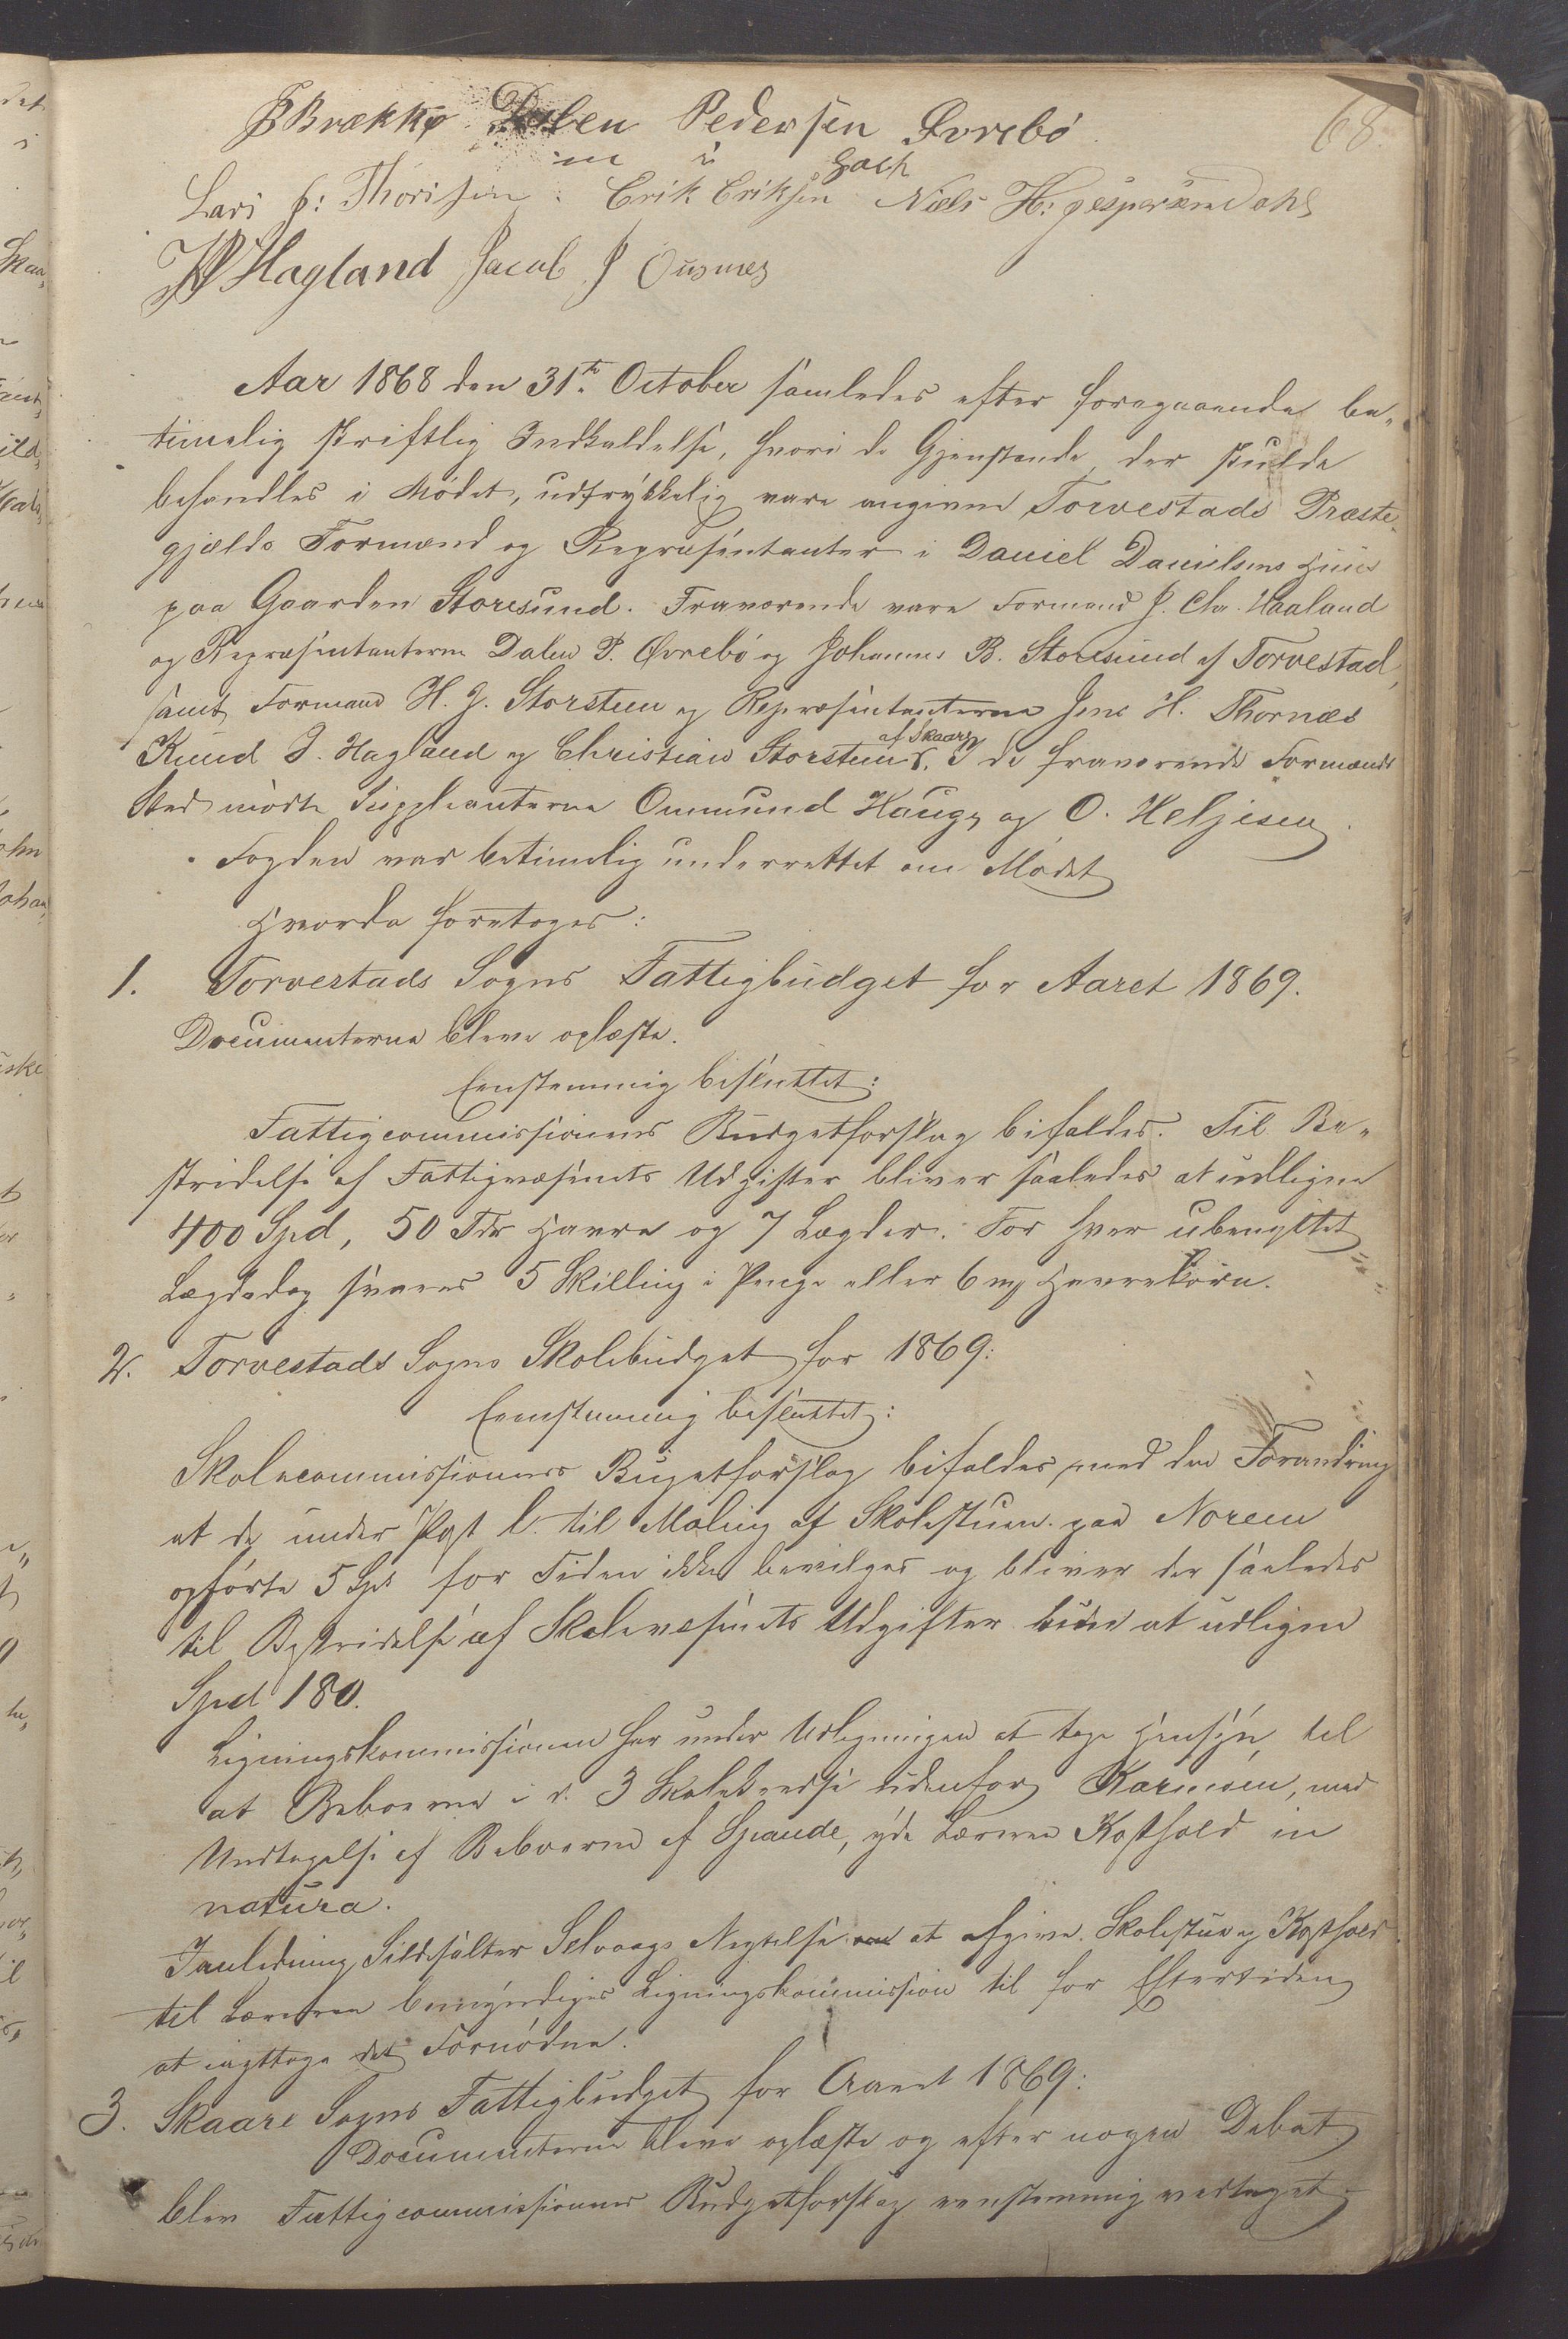 68.
B Brække Dalen Pedersen Øvrebö
Lars J: Thorisen Erik Eriksen Niels H: Jespersen Dahl
Hagland Jacob J Ousnes
Aar 1868 den 31te October samledes efter foregaaende be„
timelig skriftlig Indkaldelse, hvori de Gjenstande, der skulde
behandles i Mödet, udtrykkelig vare angivne Torvestads Præste„
gjælds Formænd og Repræsentanter i Daniel Danielsens Huus
paa Gaarden Storesund. Fraværende vare Formand J. Chr. Haaland
og Repræsentanterne Dalen P. Øvrebö og Johannes B. Storesund af Torvestad,
samt Formand H. J. Storsteen og Repræsentanterne Jens H. Thornæs
Knud J. Hagland og Christian Storsteen af Skaare. I de fraværende Formænds
Sted mödte Suppleanterne Ommund Hauge og O. Heljesen.
Fogden var betimelig underrettet om Mödet
Hvorda foretoges:
1. Torvestads Sogns Fattigbudget for Aaret 1869.
Documenterne bleve oplæste.
Eenstemmig besluttet:
Fattigcommissionens Budgetforslag bifaldes. Til Be„
stridelse af Fattigvæsenets Udgifter bliver saaledes at udligne
400 Spd, 50 Tdr Havre og 7 Lægder. For hver ubenyttet
Lægdedag svares 5 Skilling i Penge eller 6 mg Havrekorn.
2. Torvestads Sogns Skolebudget for 1869:
Eenstemmig besluttet:
Skolecommissionens Bugetforslag bifaldes, med den Forandring
at de under Post l. til Maling af Skolestuen paa Noreim
opförte 5 Spd for Tiden ikke bevilges og bliver der saaledes
til Bestridelse af Skolevæsenets Udgifter at udligne
Spd 180.
Ligningskommissionen har under Udligningen at tage Hensyn til
at Beboerne i d. 3 Skolekredse udenfor Karmöen, med
Undtagelse af Beboerne af Spande, yde Læreren Kosthold in
natura.
I Anledning Sildesalter Selvaags Negtelse at afgive Skolestue og Kosthold
til Læreren bemyndiges Ligningskommission til for Eftertiden
at iagttage det Fornödne.
3. Skaare Sogns Fattigbudget for Aaret 1869:
Documenterne bleve oplæste og efter nogen Debat
blev Fattigcommissionens Budgetforslag eenstemmig vedtaget.